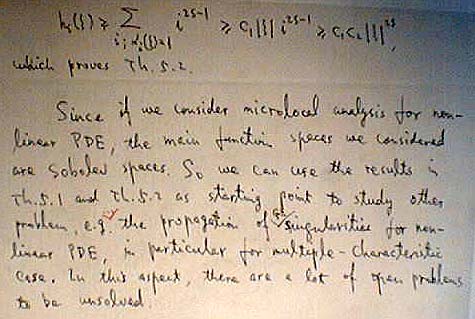 h_s(ξ) ≥ Σ_{i; α_i(ξ)=1} i^{2s-1} ≥ c_1|ξ| i^{2s-1} ≥ c_1c_2|ξ|^{2s},
which proves Th.5.2.
Since if we consider microlocal analysis for non-
linear PDE, the main function spaces we considered
are Sobolev spaces. So we can use the results in
Th.5.1 and Th.5.2 as starting point to study other
problem, e.g. the propagation of singularities for non-
linear PDE, in particular for multiple-characteristic
case. In this aspect, there are a lot of open problems
to be unsolved.